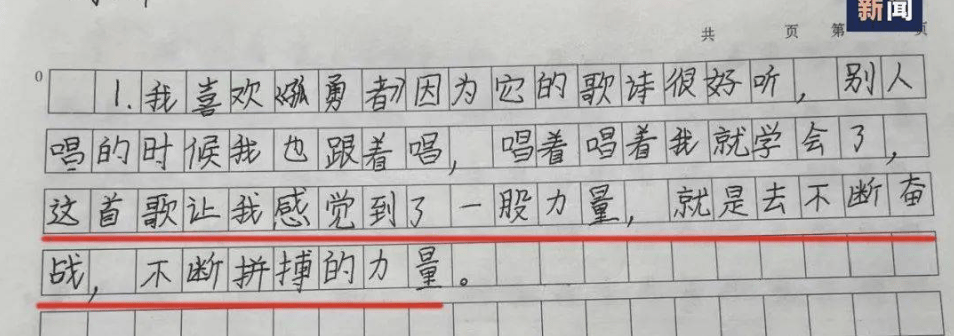 新闻
共 页 第 页
1.我喜欢《孤勇者》因为它的歌诗很好听，别人
唱的时候我也跟着唱，唱着唱着我就学会了，
这首歌让我感觉到了一股力量，就是去不断奋
战，不断拼搏的力量。